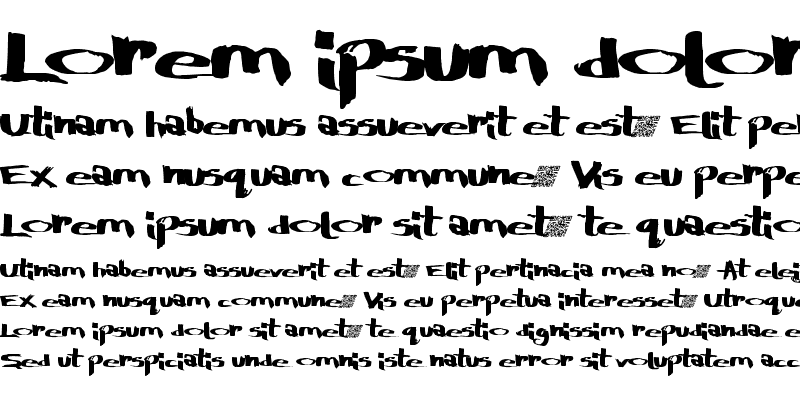 Lorem ipsum dolor
Utinam habemus assueverit et est Elit per
Ex eam nusquam commune Vis eu perpe
Lorem ipsum dolor sit amet te quaestio
Utinam habemus assueverit et est Elit pertinacia mea no At elei
Ex eam nusquam commune Vis eu perpetua interesset Utroque
Lorem ipsum dolor sit amet te quaestio dignissim repudiandae e
Sed ut perspiciatis unde omnis iste natus error sit voluptatem acc